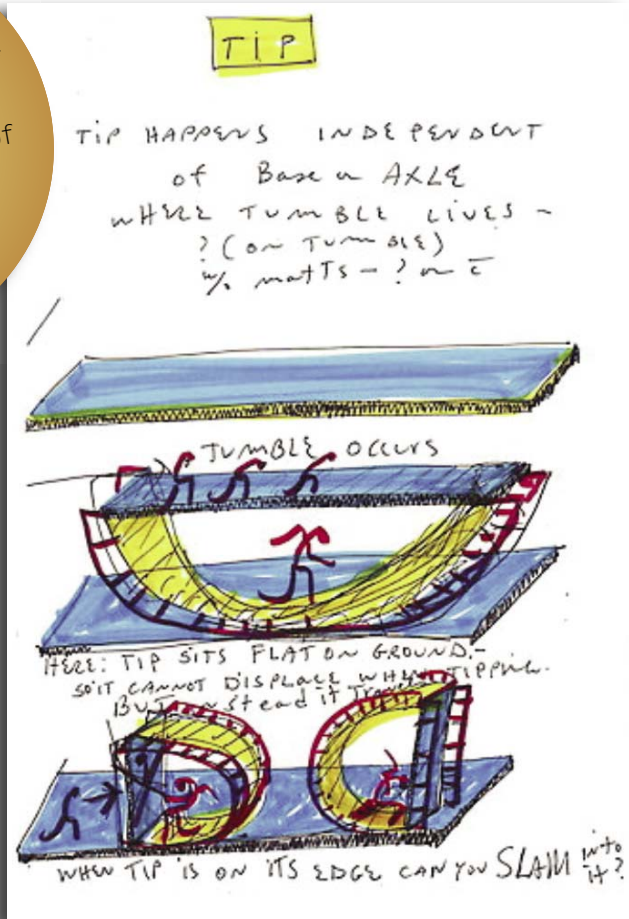 TIP
f
TIP HAPPENS INDEPENDENT
of Base or AXLE
WHERE TUMBLE LIVES -
? (ON TUMBLE)
w/ matts - ? or
TUMBLE OCCURS
HERE: TIP SITS FLAT ON GROUND. -
SO IT CANNOT DISPLACE WHEN TIPPING.
BUT INStead it
WHEN TIP IS ON ITS EDGE CAN YOU SLAM into
it?